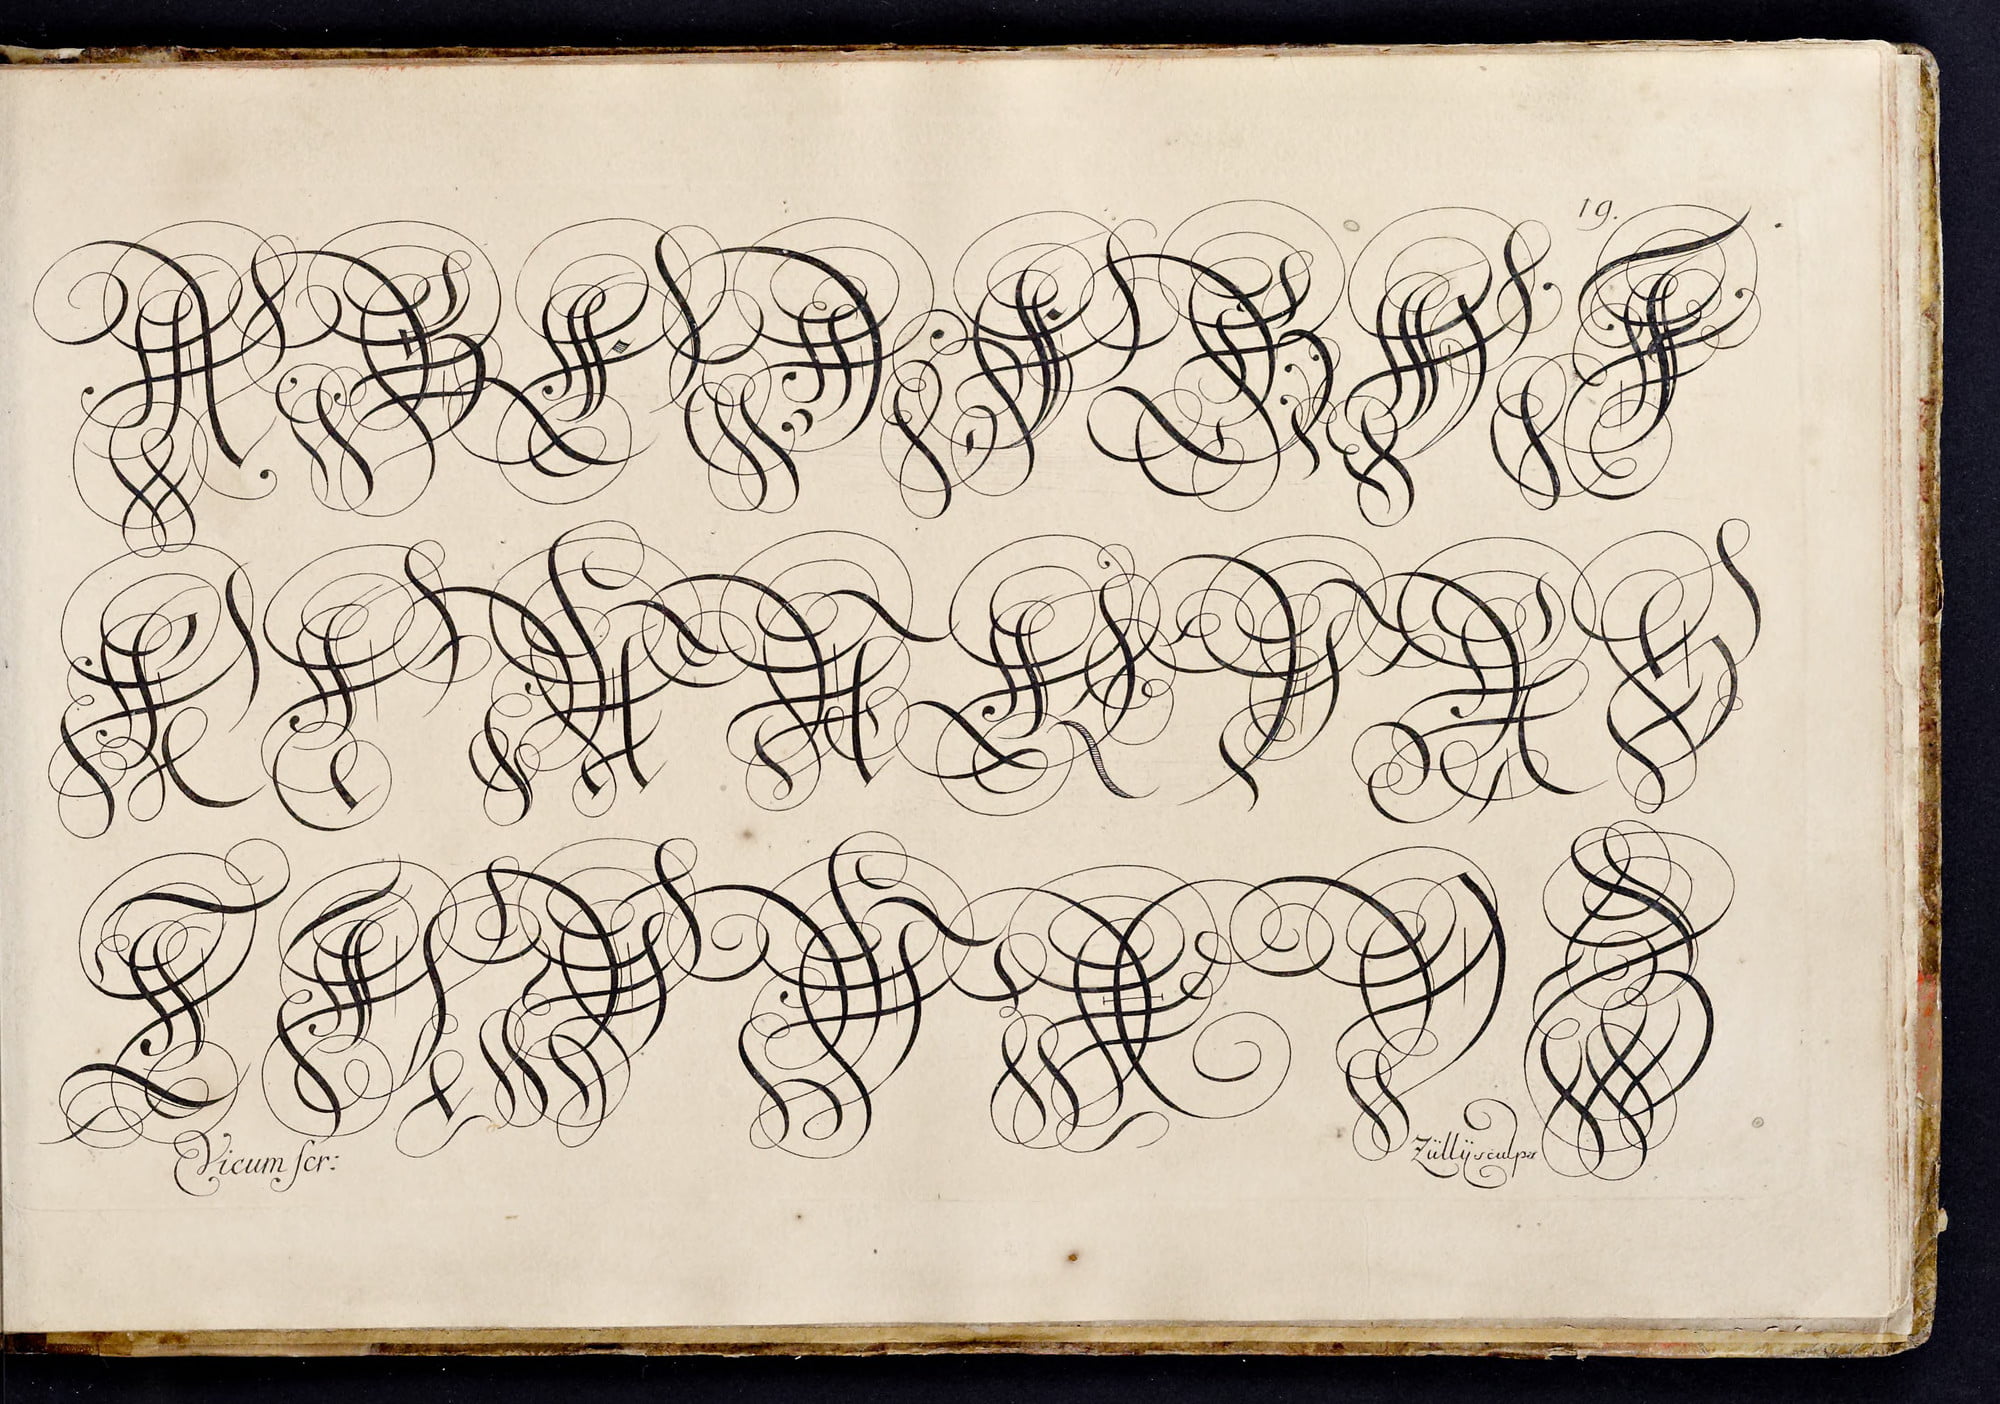 19.
A B C D E
K L M N P R S
T V W X Y Z
Vicum ſcr:
Züllÿ sculps